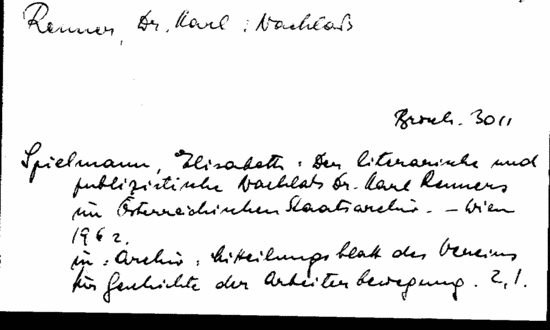 Renner, Dr. Karl : Nachlaß
Brosch. 3011
Spielmann, Elisabeth : Der literarische und
publizistische Nachlaß Dr. Karl Renners
im Österreichischen Staatsarchiv. – Wien
1962.
in : Archiv : Mitteilungsblatt des Vereins
für Geschichte der Arbeiterbewegung. 2,1.